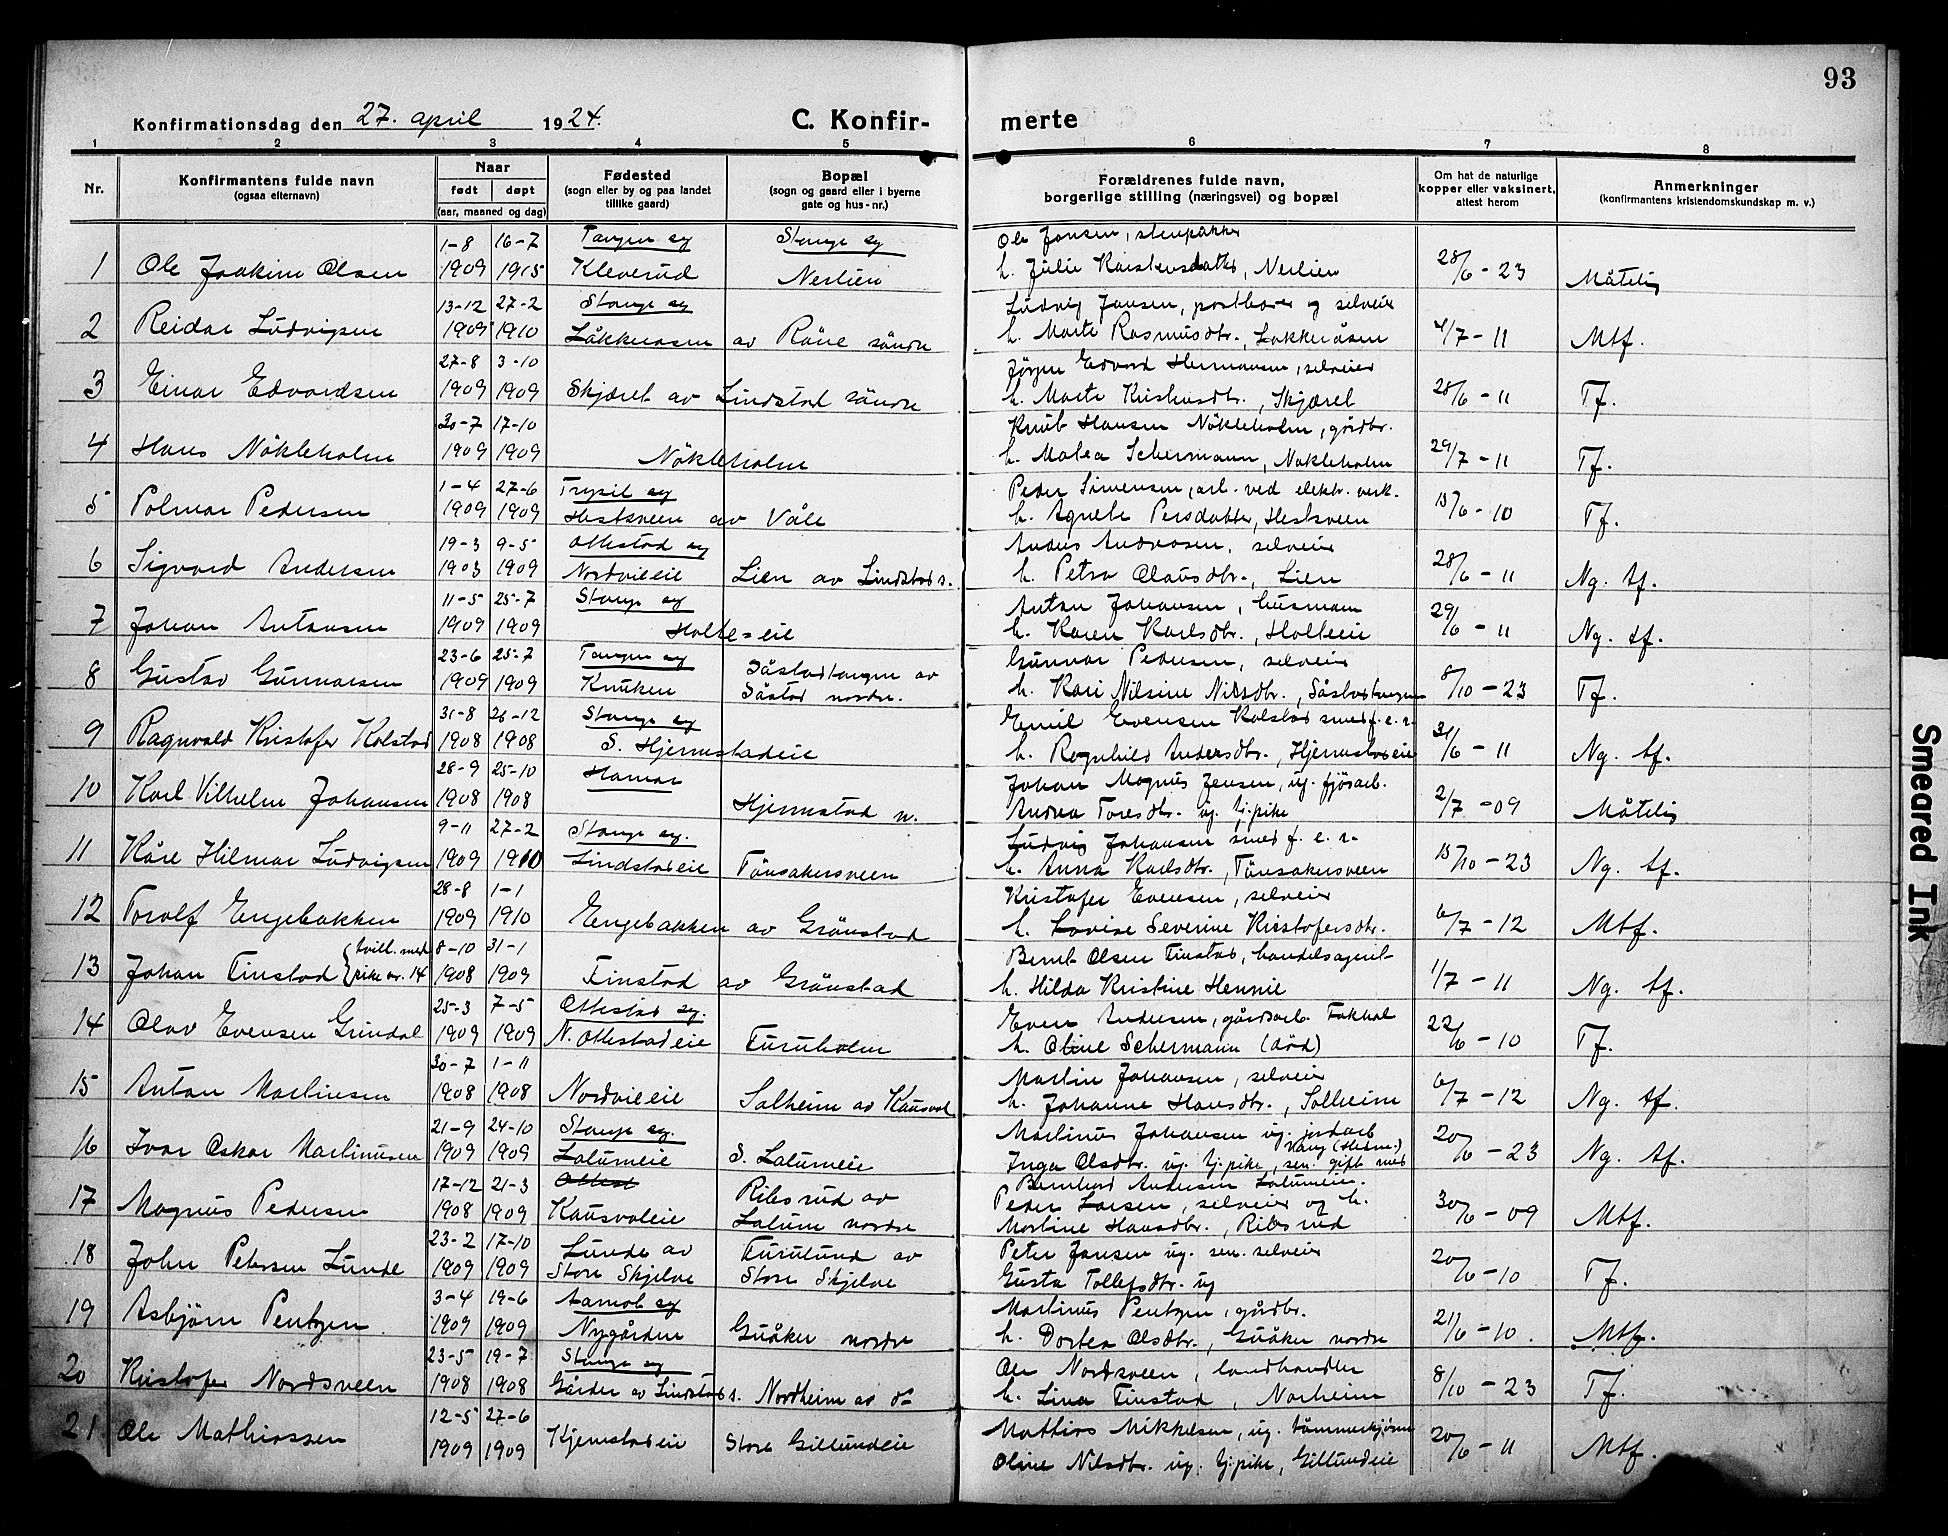 93
Konfirmationsdag den 27. april 1924.
C. Konfir-merte
1 2 3 4 5 6 7 8
Nr.
Konfirmantens fulde navn
(ogsaa elternavn)
Naar
født døpt
(aar, maaned og dag)
Fødested
(sogn eller by og paa landet
tillike gaard)
Bopæl
(sogn og gaard eller i byerne
gate og hus-nr.)
Forældrenes fulde navn,
borgerlige stilling (næringsvei) og bopæl
Om hat de naturlige
kopper eller vaksinert,
attest herom
Anmerkninger
(konfirmantens kristendomskundskap m. v.)
1-8 16-7 Tangen sg Stange sg Ole Jansen,
1 Ole Joakim Olsen 1909 1915 Kleverud Nerlien h. Julie Karstensdatter, Nerlien 28/6-23 Måtelig
13-12 27-2 Stange sg Ludvig Jansen, postbærer og selveier
2 Reidar Ludvigsen 1909 1910 Låkkeråsen av Råne søndre h. Marte Rasmusdtr., Lakkeråsen 4/7-11 Mtf.
27-8 3-10 Jörgen Edvard Hermansen, selveier
3 Einar Edvardsen 1909 1909 Skjæret av Lindstad søndre h. Marte Kristiansdtr., Skjæret 28/6-11 Tf.
20-7 17-10 Knut Hansen Nökleholm, gårdbr.
4 Hans Nökleholm 1909 1909 Nökleholm h. Malea Schermann, Nökleholm 29/7-11 Tf.
1-4 27-6 Trysil sg Peder Simensen, arb. ved elektr. verk.
5 Polmar Pedersen 1909 1909 Hestsveen av Våle h. Agnete Persdatter, Hestsveen 15/6-10 Tf.
19-3 9-5 Ottestad sg Anders Andreasen, selveier
6 Sigvard Andersen 1903 1909 Nordvieie Lien av Lindstad s. h. Petra Clausdtr., Lien 28/6-11 Ng. tf.
11-5 25-7 Stange sg Anton Johansen, husmann
7 Johan Antonsen 1909 1909 Holte=eie h. Karen Karlsdtr., Holteeie 29/6-11 Ng. tf.
23-6 25-7 Tangen sg Såstadtangen av Gunnar Pedersen, selveier
8 Gustav Gunnarsen 1909 1909 Knuken Såstad nordre. h. Kari Nilsine Nilsdtr., Såstadtangen 8/10-23 Tf.
31-8 26-12 Stange sg Emil Evensen Kolstad smed f.e.r.
9 Ragnvald Kristofer Kolstad 1908 1908 S. Hjemstadeie h. Ragnhild Andersdtr., Hjemstadeie 31/6-11 Ng. tf.
28-9 25-10 Hamar Johan Magnus Jensen, ug. fjösarb.
10 Karl Vilhelm Johansen 1908 1908 Hjemstad n. Andrea Toresdtr. ug. tj.pike 2/7-09 Måtelig
9-11 27-2 Stange sg. Ludvig Johansen smed f.e.r.
11 Kåre Hilmar Ludvigsen 1909 1910 Lindstadeie Tönsakersveen h. Anna Karlsdtr., Tönsakersveen 15/10-23 Ng. tf.
28-8 1-1 Kristofer Evensen, selveier
12 Torolf Engebakken 1909 1910 Engebakken av Grönstad h. Lovise Severine Kristofersdtr. 6/7-12 Mtf.
tvill. med 8-10 31-1 Bernt Olsen Finstad, handelsagent
13 Johan Finstad pike nr. 14 1908 1909 Finstad av Grönstad h. Hilda Kristine Hennie 1/7-11 Ng. tf.
25-3 7-5 Ottestad sg. Even Andersen, gårdsarb. Fokhol
14 Olav Evensen Grindal 1909 1909 N. Ottestadeie Furuholm h. Oline Schermann (död) 22/6-10 Tf.
30-7 1-11 Martin Johansen, selveier
15 Anton Martinsen 1908 1908 Nordvieie Solheim av Kausvol h. Johanne Hansdtr., Solheim 6/7-12 Ng. tf.
21-9 24-10 Stange sg. Martinus Johansen ug. jordarb Vang (Hedm.)
16 Ivar Oskar Martinusen 1909 1909 Lalumeie S. Lalumeie Inga Olsdtr. ug. tj.pike, sen. gift med 20/6-23 Ng. tf.
Bernhard Andersen Lalumeie.
17-12 21-3 Ottest Ribsrud av Peder Larsen, selveier og h.
17 Magnus Pedersen 1908 1909 Kausvoleie Lalum nordre Martine Hansdtr., Ribsrud 30/6-09 Mtf.
23-2 17-10 Lunde av Furulund av Peter Jansen ug. sen. selveier
18 John Petersen Lunde 1909 1909 Store Skjelve Store Skjelve Gusta Tollefsdtr. ug 20/6-10 Tf.
3-4 19-6 Aamot sg Martinus Pentzen, gårdbr.
19 Asbjörn Pentzen 1909 1909 Nygården Guåker nordre h. Dortea Olsdtr., Guåker nordre 21/6-10. Mtf.
23-5 19-7 Stange sg Ole Nordsveen, landhandler
20 Kristofer Nordsveen 1908 1908 Gårder av Lindstad s. Nordheim av do h. Lina Finstad, Norheim 8/10-23 Tf.
12-5 27-6 Mathias Mikkelsen, ug. tömmerkjörer
21. Ole Mathiassen 1909 1909 Hjemstadeie Store Gillundeie Oline Nilsdtr. ug. tj.pike, Gillundeie 20/6-11 Mtf.
Smeared Ink